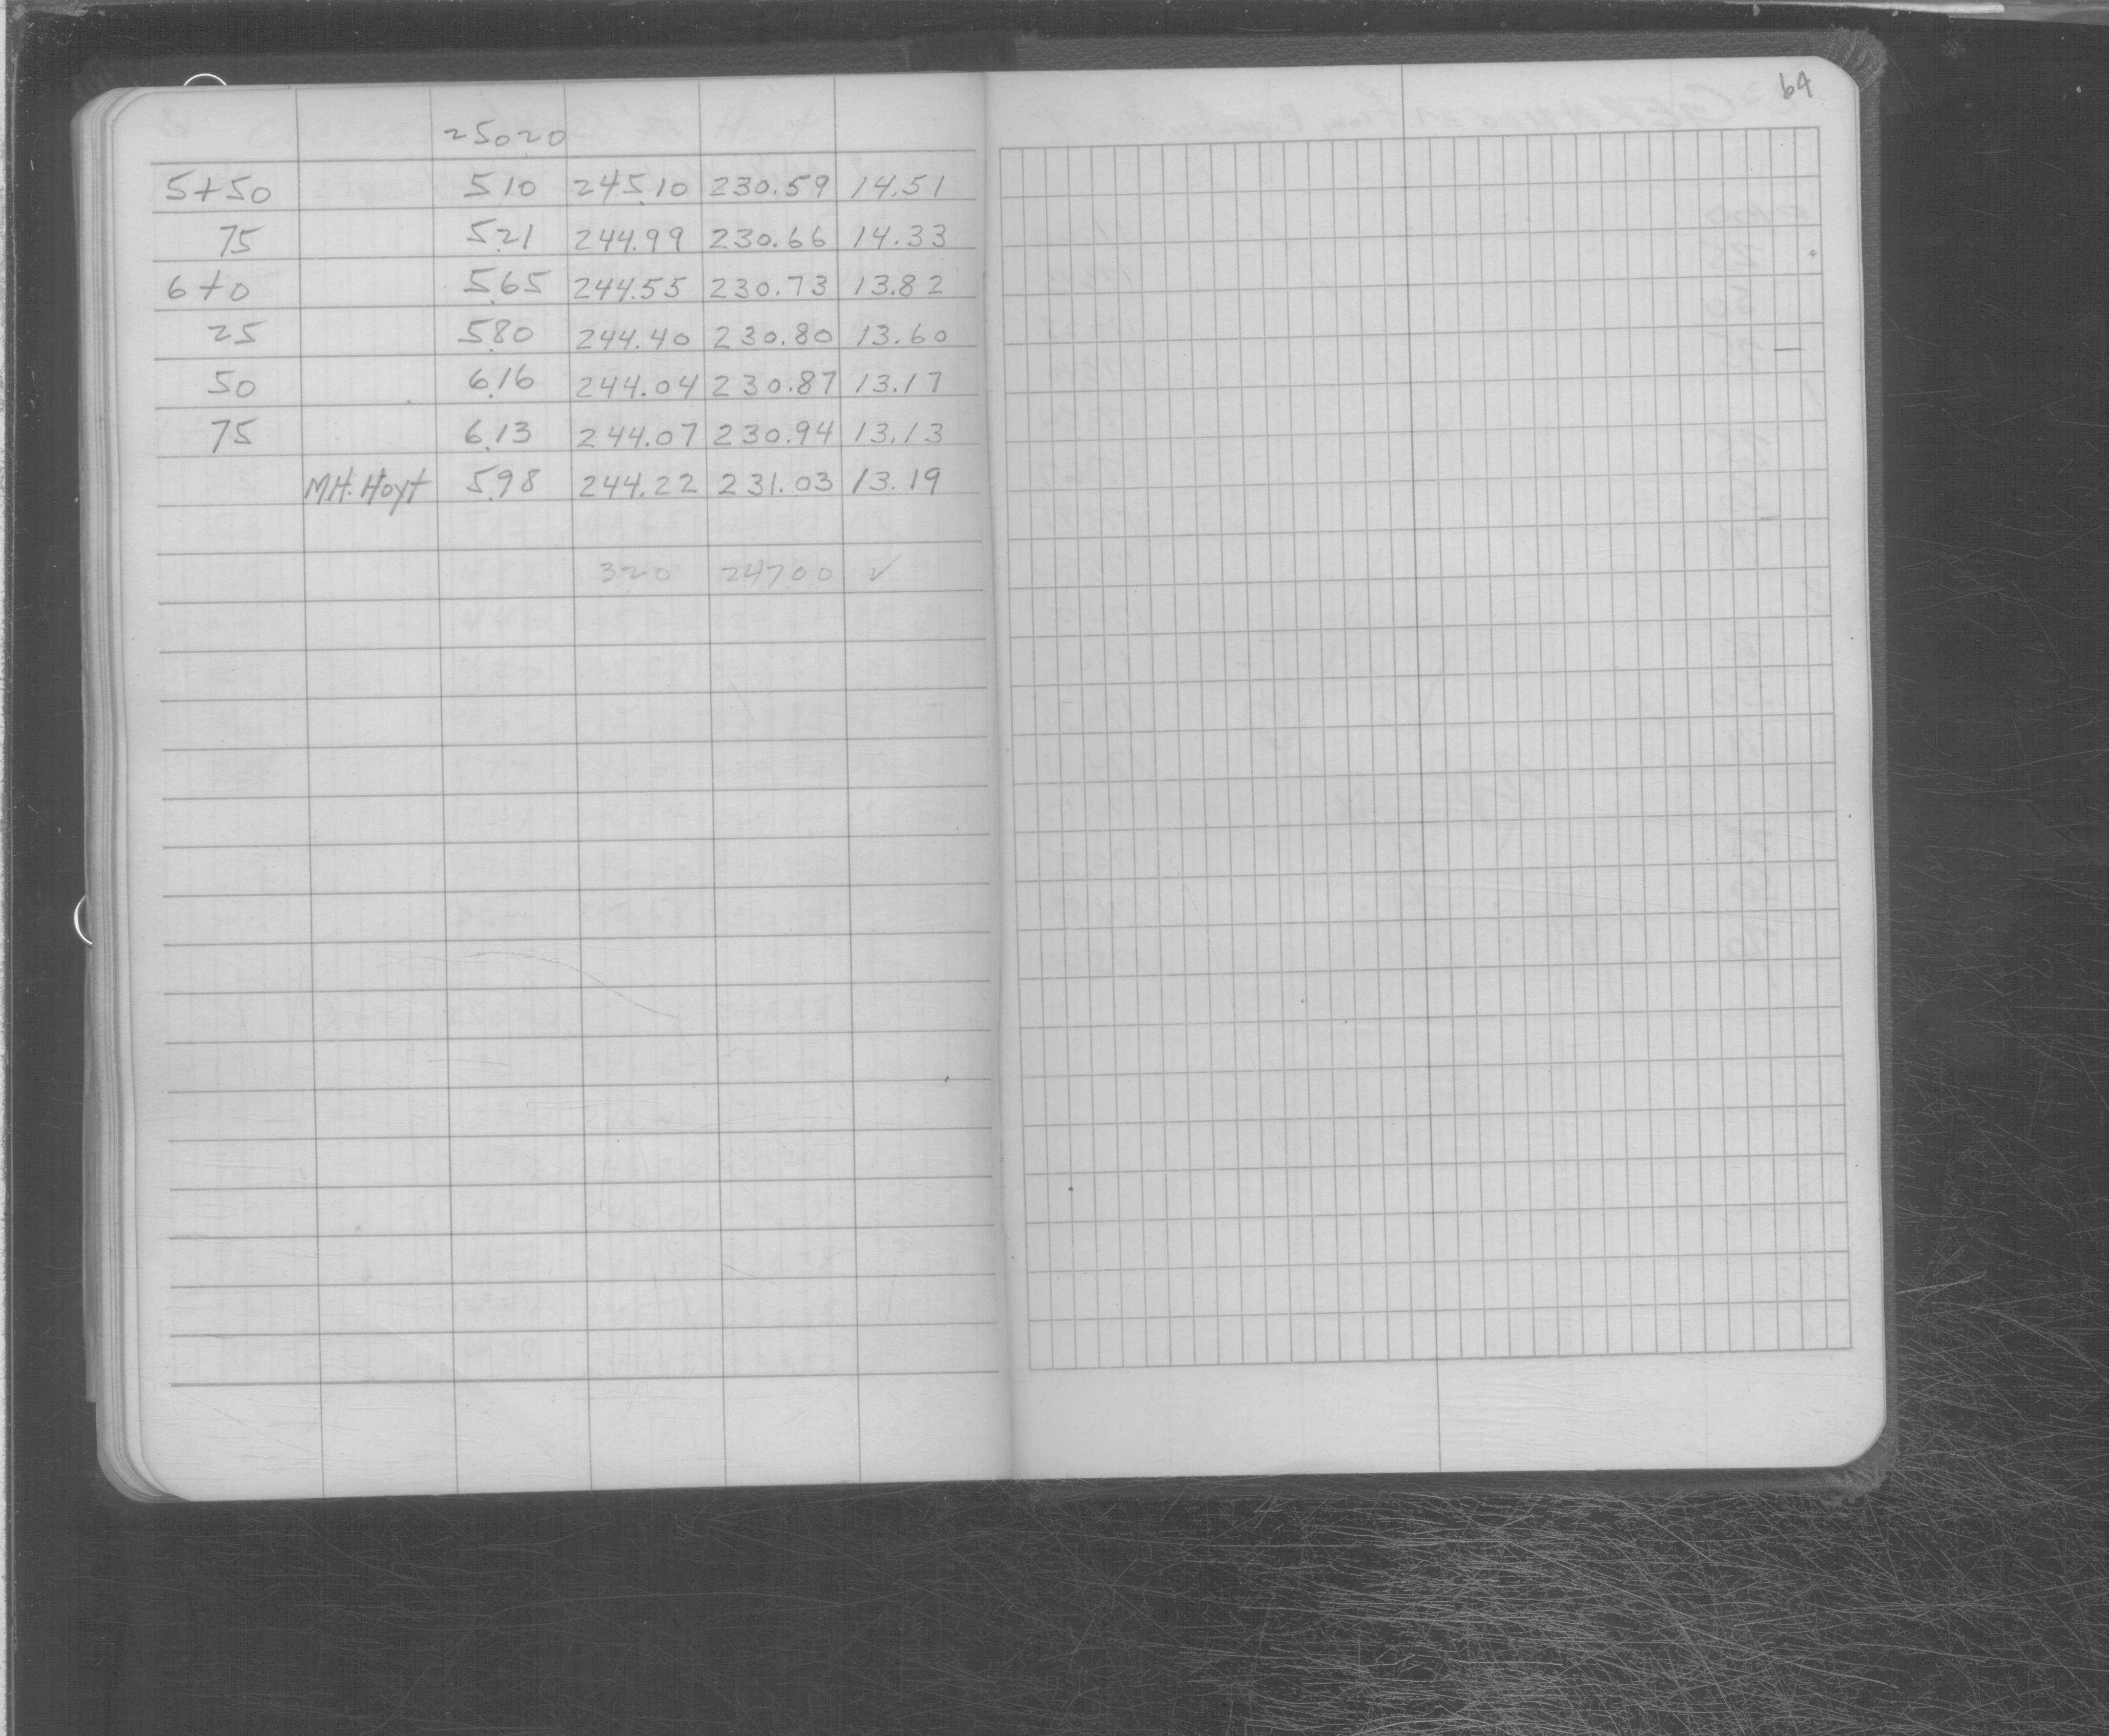 64
25020
5+50 5.10 245.10 230.59 14.51
75 5.21 244.99 230.66 14.33
6+0 5.65 244.55 230.73 13.82
25 5.80 244.40 230.80 13.60
50 6.16 244.04 230.87 13.17
75 6.13 244.07 230.94 13.13
M.H. Hoyt 5.98 244.22 231.03 13.19
320 24700 ✓